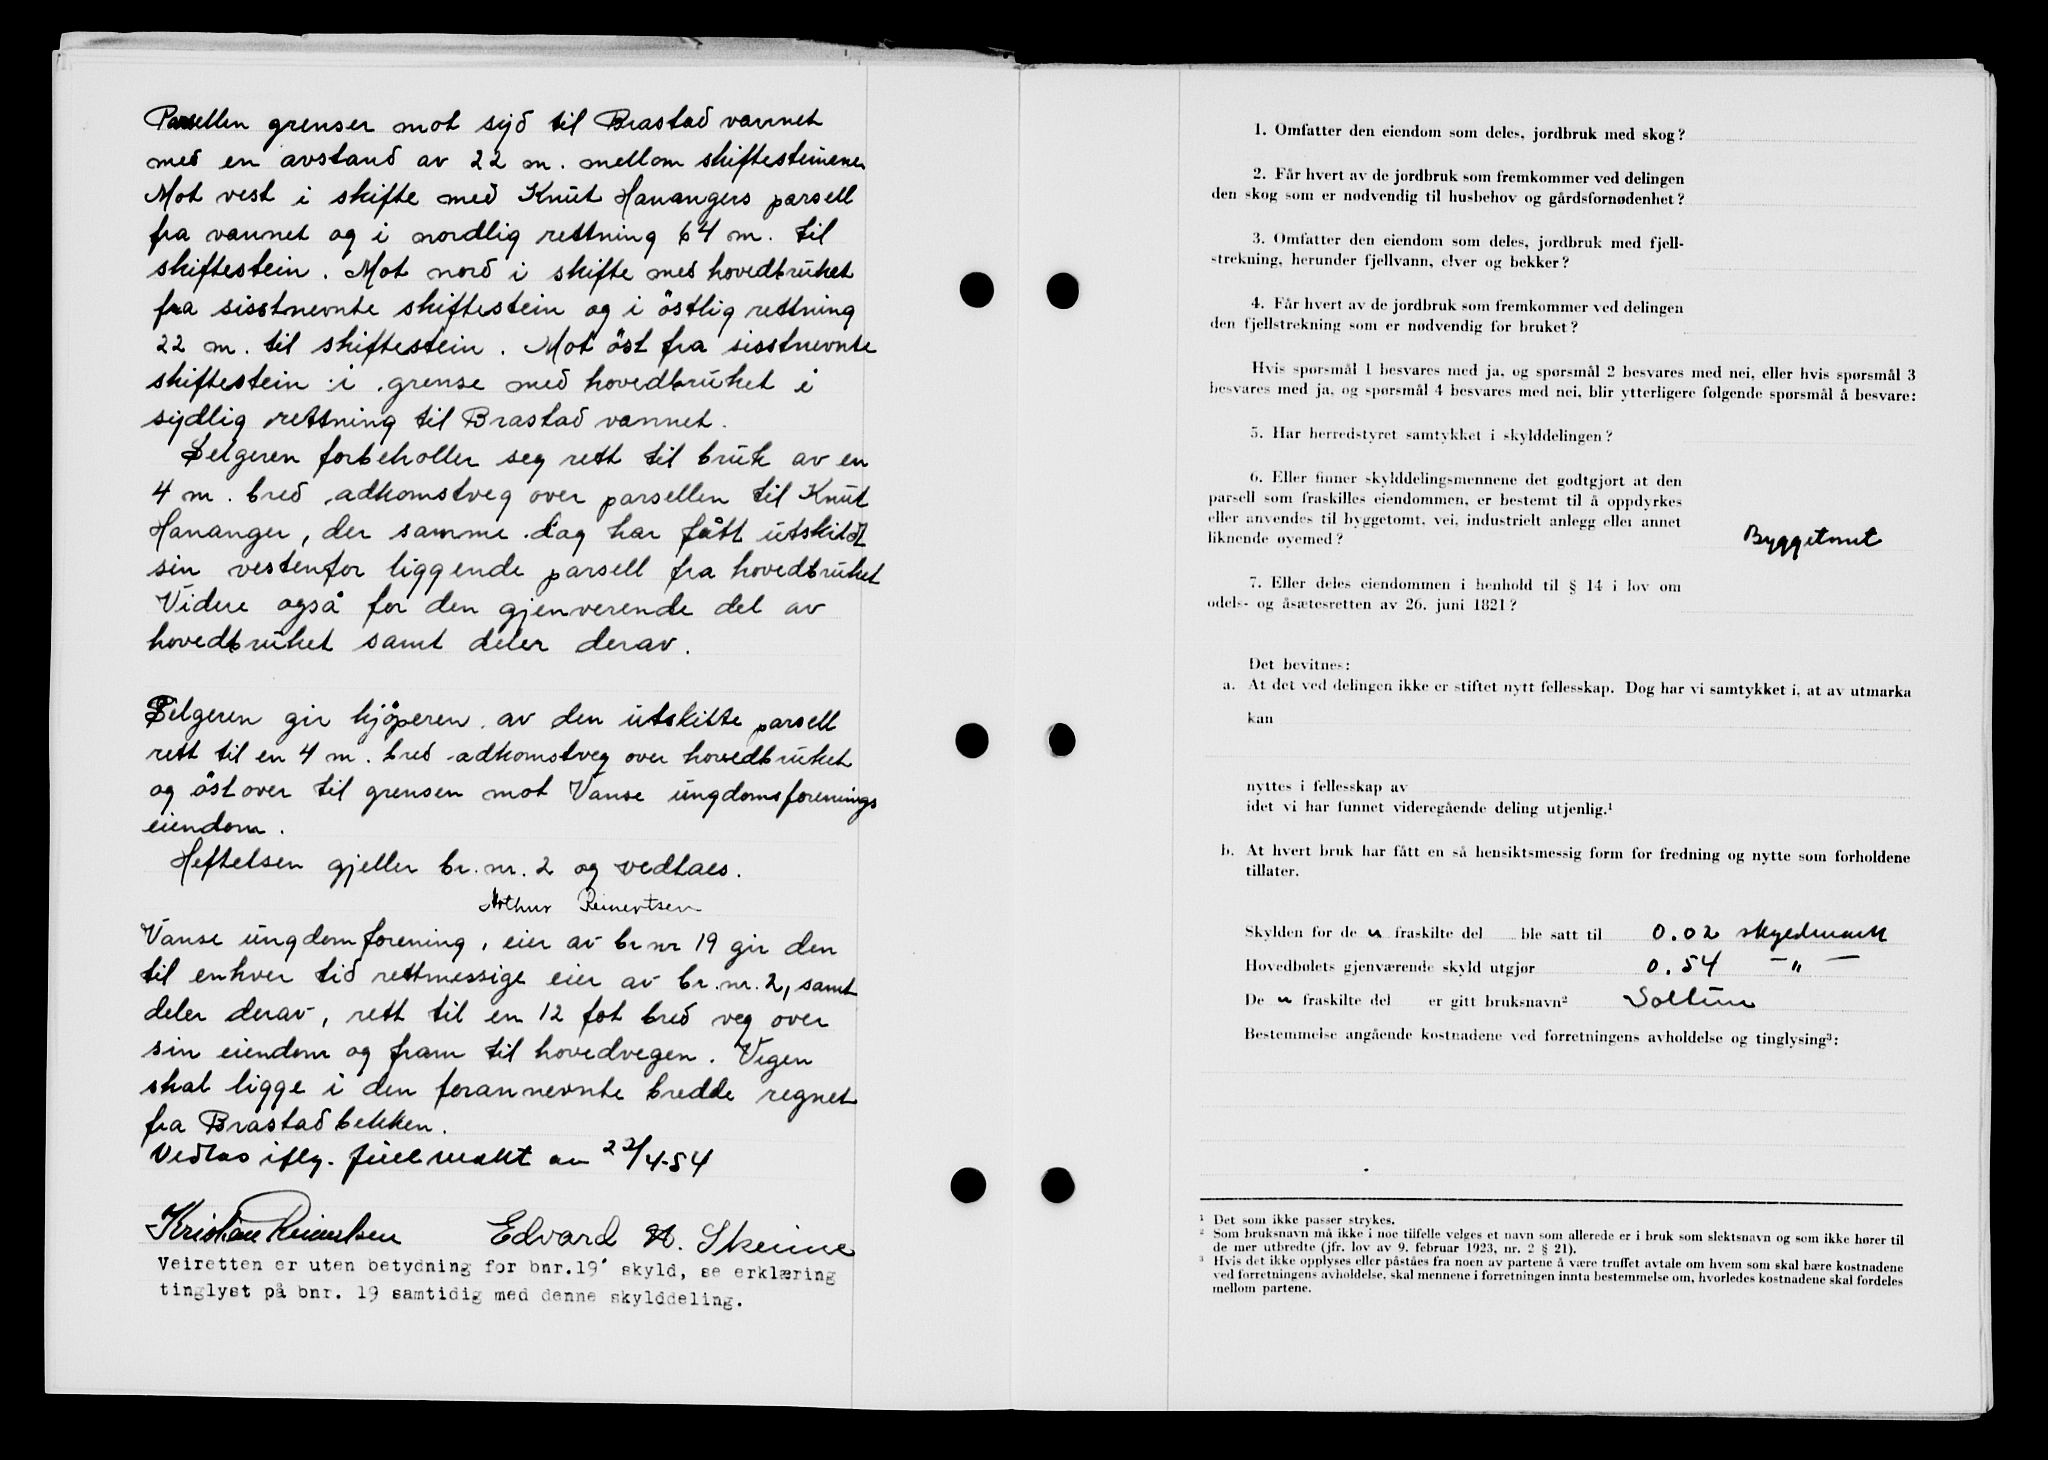 Parsellen grenser mot syd til Brastad vannet
med en avstand av 22 m. mellom skiftesteinene
Mot vest i skifte med Knut Hanangers parsell
fra vannet og i nordlig rettning 64 m. til
skiftestein. Mot nord i skifte med hovedbruket
fra sisstnevnte skiftestein og i östlig rettning
22 m. til skiftestein. Mot öst fra sisstnevnte
skiftestein i grense med hovedbruket i
sydlig rettning til Brastad vannet.
Selgeren forbeholler seg rett til bruk av en
4 m. bred adkomstveg over parsellen til Knut
Hananger, der samme dag har fått utskildt
sin vestenfor liggende parsell fra hovedbruket
Videre også for den gjenverende del av
hovedbruket samt deler derav.
Selgeren gir kjöperen av den utskilte parsell
rett til en 4 m. bred adkomstveg over hovedbruket
og östover til grensen mot Vanse ungdomsforenings
eiendom.
Heftelsen gjeller br. nr. 2 og vedtaes.
Arthur Reinertsen
Vanse ungdomforening, eier av br nr 19 gir den
til enhver tid rettmessige eier av br. nr. 2, samt
deler derav, rett til en 12 fot bred veg over
sin eiendom og fram til hovedvegen. Vegen
skal ligge i den forannevnte bredde regnet
fra Brastad bekken.
Vedtas iflg. fullmakt av 22/4-54
Kristian Reinertsen Edvard N. Skeime
Veiretten er uten betydning for bnr.19' skyld, se erklæring
tinglyst på bnr. 19 samtidig med denne skylddeling.
1. Omfatter den eiendom som deles, jordbruk med skog?
2. Får hvert av de jordbruk som fremkommer ved delingen
den skog som er nødvendig til husbehov og gårdsfornødenhet?
3. Omfatter den eiendom som deles, jordbruk med fjell-
strekning, herunder fjellvann, elver og bekker?
4. Får hvert av de jordbruk som fremkommer ved delingen
den fjellstrekning som er nødvendig for bruket?
Hvis spørsmål 1 besvares med ja, og spørsmål 2 besvares med nei, eller hvis spørsmål 3
besvares med ja, og spørsmål 4 besvares med nei, blir ytterligere følgende spørsmål å besvare:
5. Har herredstyret samtykket i skylddelingen?
6. Eller finner skylddelingsmennene det godtgjort at den
parsell som fraskilles eiendommen, er bestemt til å oppdyrkes
eller anvendes til byggetomt, vei, industrielt anlegg eller annet
liknende øyemed? Byggetomt
7. Eller deles eiendommen i henhold til § 14 i lov om
odels- og åsætesretten av 26. juni 1821?
Det bevitnes:
a. At det ved delingen ikke er stiftet nytt fellesskap. Dog har vi samtykket i, at av utmarka
kan
nyttes i fellesskap av
idet vi har funnet videregående deling utjenlig.¹
b. At hvert bruk har fått en så hensiktsmessig form for fredning og nytte som forholdene
tillater.
Skylden for de n fraskilte del ble satt til 0.02 skyldmark
Hovedbølets gjenværende skyld utgjør 0.54 — " —
De n fraskilte del er gitt bruksnavn² Soltun
Bestemmelse angående kostnadene ved forretningens avholdelse og tinglysing³:
¹ Det som ikke passer strykes.
² Som bruksnavn må ikke i noe tilfelle velges et navn som allerede er i bruk som slektsnavn og som ikke hører til
de mer utbredte (jfr. lov av 9. februar 1923, nr. 2 § 21).
³ Hvis det ikke opplyses eller påståes fra noen av partene å være truffet avtale om hvem som skal bære kostnadene
ved forretningens avholdelse, skal mennene i forretningen innta bestemmelse om, hvorledes kostnadene skal fordeles
mellom partene.